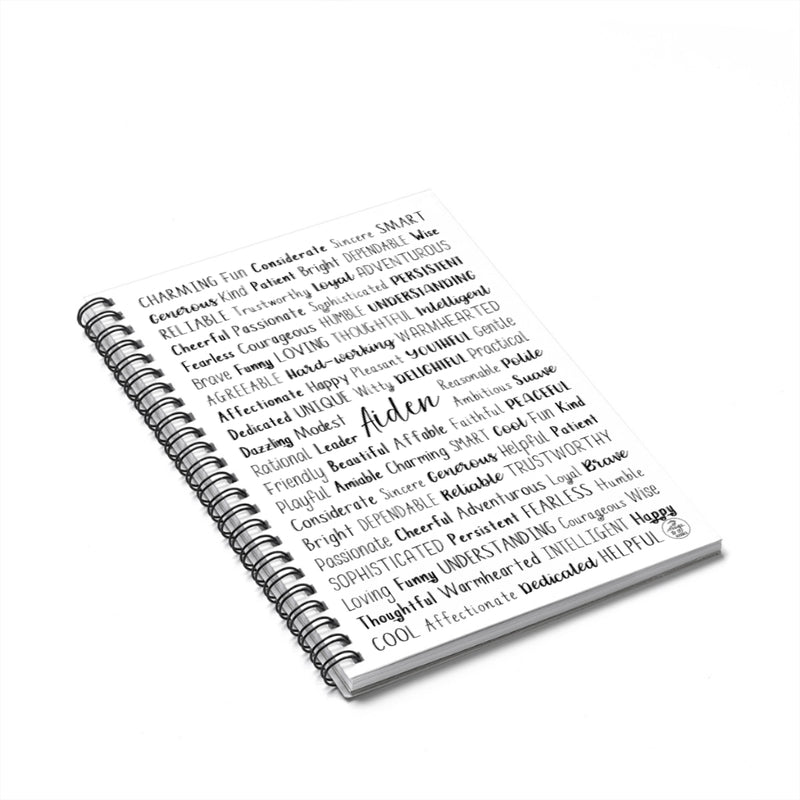 CHARMING Fun Considerate Sincere SMART
Generous Kind Patient Bright DEPENDABLE Wise
RELIABLE Trustworthy Loyal ADVENTUROUS
Cheerful Passionate Sophisticated PERSISTENT
Fearless Courageous HUMBLE UNDERSTANDING
Brave Funny LOVING THOUGHTFUL Intelligent
AGREEABLE Hard-working WARMHEARTED
Affectionate Happy Pleasant YOUTHFUL Gentle
Dedicated UNIQUE Witty DELIGHTFUL Practical
Dazzling Modest Aiden Reasonable Polite
Rational Leader Ambitious Suave
Friendly Beautiful Affable Faithful PEACEFUL
Playful Amiable Charming SMART Cool Fun Kind
Considerate Sincere Generous Helpful Patient
Bright DEPENDABLE Reliable TRUSTWORTHY
Passionate Cheerful Adventurous Loyal Brave
SOPHISTICATED Persistent FEARLESS Humble
Loving Funny UNDERSTANDING Courageous Wise
Thoughtful Warmhearted INTELLIGENT Happy
COOL Affectionate Dedicated HELPFUL